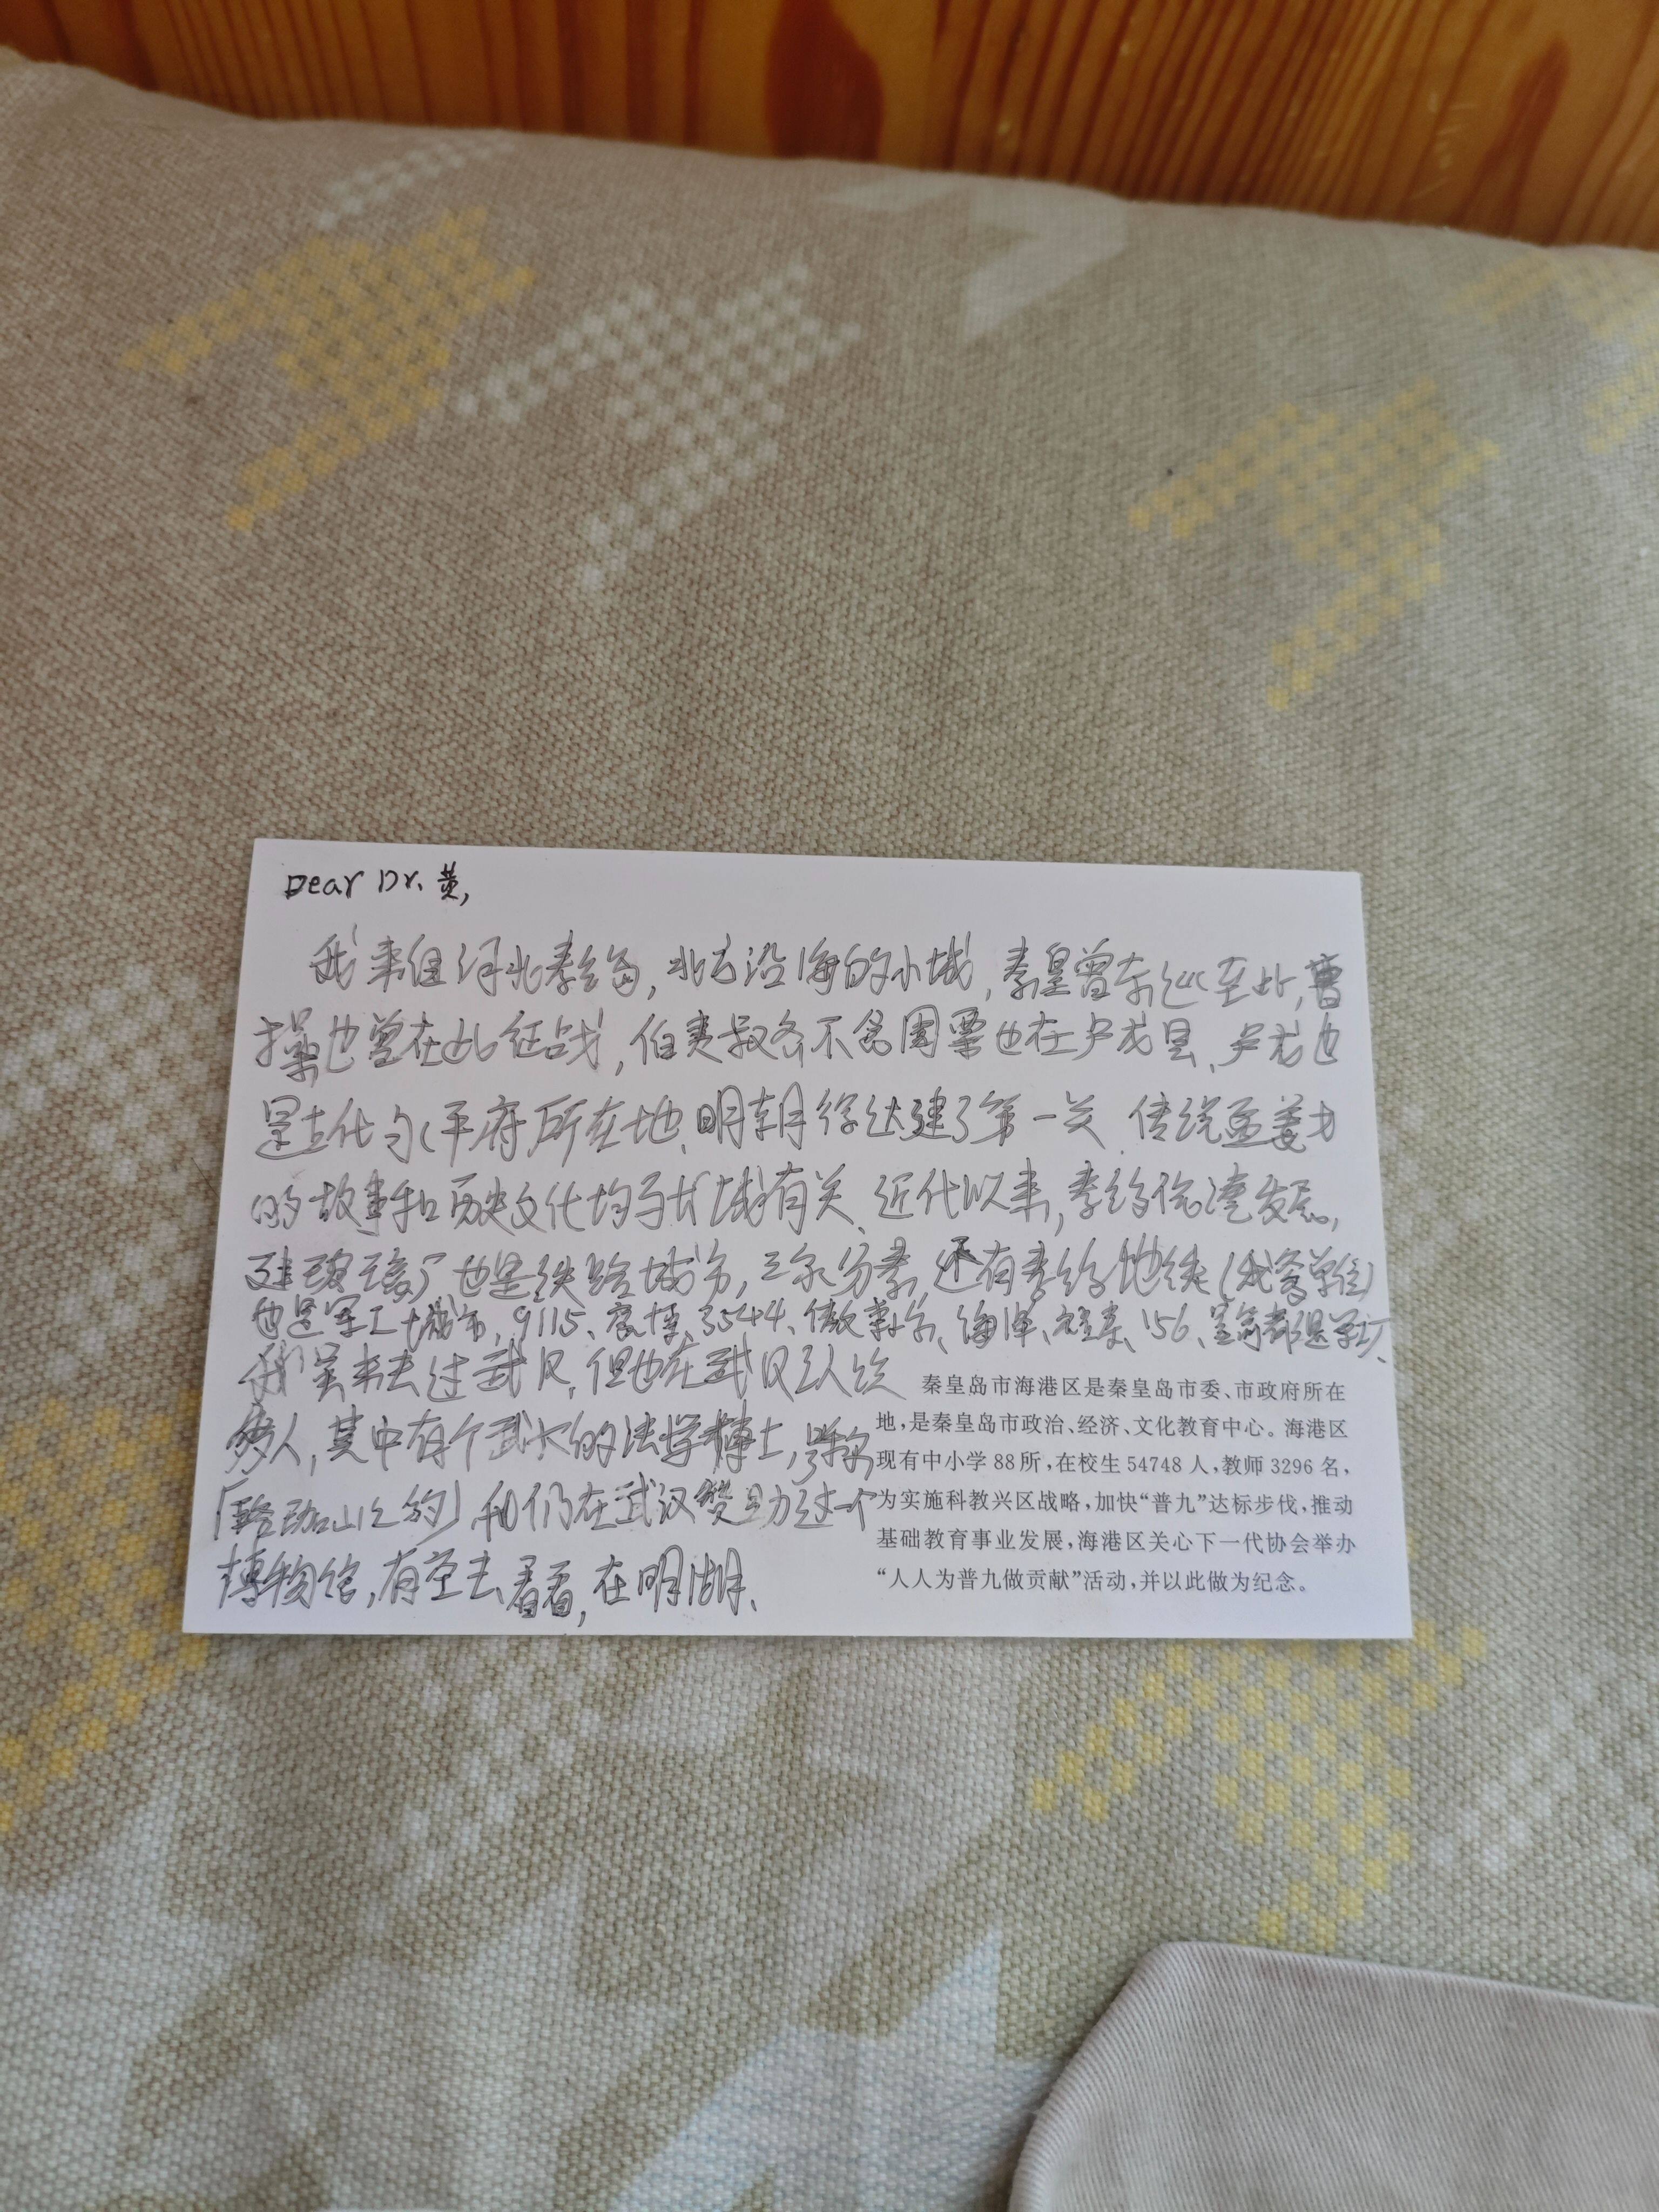 Dear Dr. 黄,
我来自河北秦皇岛,北方沿海的小城,秦皇曾东巡至此,曹
操也曾在此征战,伯夷叔齐不食周粟也在卢龙县、卢龙也
是古代永平府所在地、明朝徐达建了第一关、传说孟姜女
的故事和历史文化均与长城有关、近代以来,秦皇岛港发展,
建玻璃厂也是铁路城市,三家分秦,还有秦皇岛地铁(我爸单位)
也是军工城市,9115、 3544、 海 156、
我虽未去过武汉,但也在武汉认识
多人,其中有个武大的法学博士,
「珞珈山之约」和们在武汉赞助过一个
博物馆,有空去看看,在明湖、
秦皇岛市海港区是秦皇岛市委、市政府所在
地,是秦皇岛市政治、经济、文化教育中心。海港区
现有中小学 88 所,在校生 54748 人,教师 3296 名,
为实施科教兴区战略,加快“普九”达标步伐,推动
基础教育事业发展,海港区关心下一代协会举办
“人人为普九做贡献”活动,并以此做为纪念。